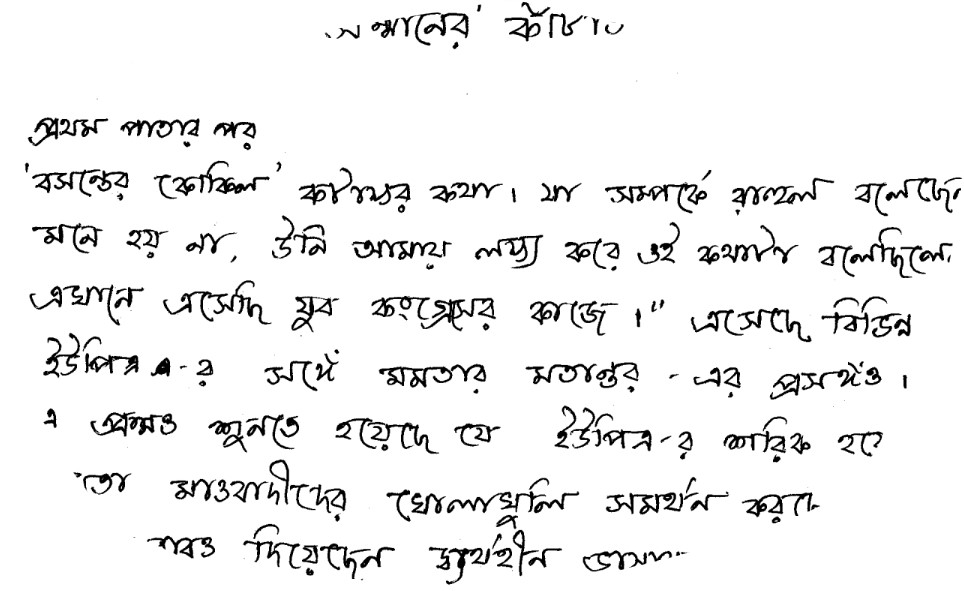 সম্মানের কাঁটা
প্রথম পাতার পর
'বসন্তের কোকিল' কটাক্ষর কথা। যা সম্পর্কে রাহুল বলেছেন
মনে হয় না, উনি আমায় লক্ষ্য করে ওই কথাটা বলেছিলেন
এখানে এসেছি যুব কংগ্রেসের কাজে।" এসেছে বিভিন্ন
ইউপিএ-র সঙ্গে মমতার মতান্তর-এর প্রসঙ্গও।
এ প্রশ্নও শুনতে হয়েছে যে ইউপিএ-র শরিক
তো মাওবাদীদের খোলাখুলি সমর্থন করছে
দিয়েছেন দ্ব্যর্থহীন